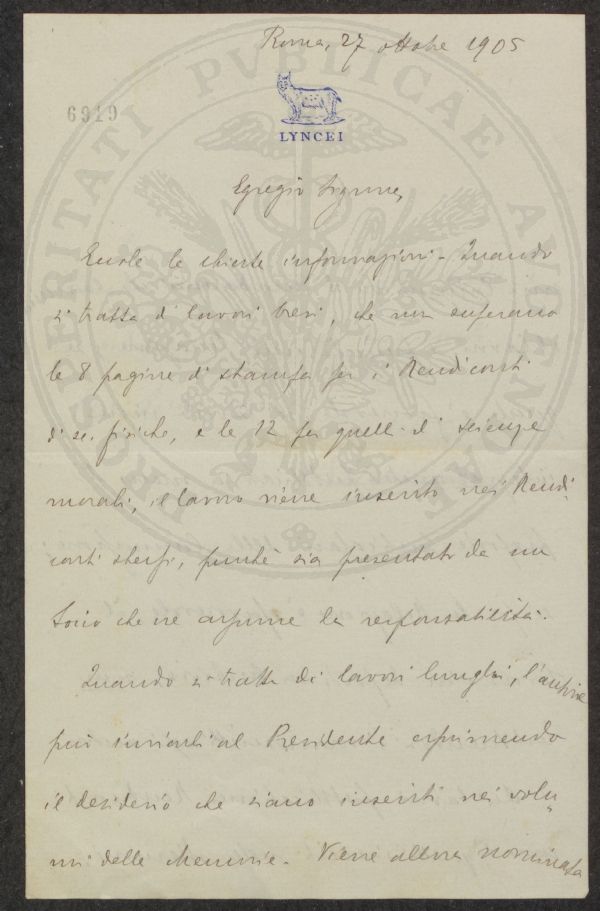 Roma, 27 ottobre 1905
6919
LYNCEI
PROSPERITATI PVBLICAE AVGENDAE
Egregio Signore,
Eccole le chieste informazioni - Quando
si tratta di lavori brevi, che non superano
le 8 pagine di stampa per i Rendiconti
di sc. fisiche, e le 12 per quelli di scienze
morali, il lavoro viene inserito nei Rendi
conti stessi, purchè sia presentato da un
Socio che ne assume la responsabilità.
Quando si tratta di lavori lunghi, l'autore
può inviarli al Presidente esprimendo
il desiderio che siano inseriti nei volu
mi delle Memorie - Viene allora nominata